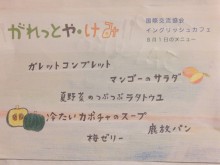 がれっとや・けみ
島根交流協会
イングリッシュカフェ
8月1日のメニュー
ガレットコンプレット
マンゴーのサラダ
夏野菜のつぶつぶラタトゥユ
冷たいカボチャのスープ
鹿校パン
梅ゼリー